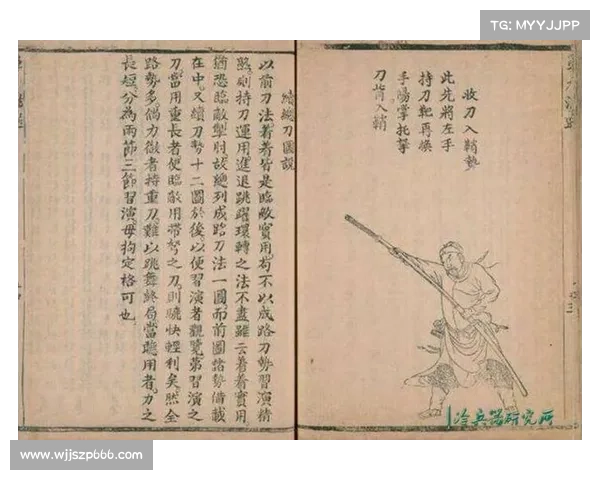 TG: MYYJJPP
收刀入鞘勢
此先將左手
持刀靶再換
手陽掌托拏
刀背入鞘
續總刀圖說
以前刀法著著皆是臨敵實用苟不以成路刀勢習演精
熟則持刀運用進退跳躍環轉之法不盡雖云著著實用
猶恐臨敵掣肘故總列成路刀法一圖而前圖諸勢備載
在中又續刀勢十二圖於後以便習演者觀覽第習演之
刀當用重長者使臨敵用帶弩之刀則驍快輕利矣然全
路勢多倘力微者持重刀難以跳舞終局當聽用者力之
長短分為兩節三節習演毋拘定格可也
冷兵器研究所
www.wjjszp666.com